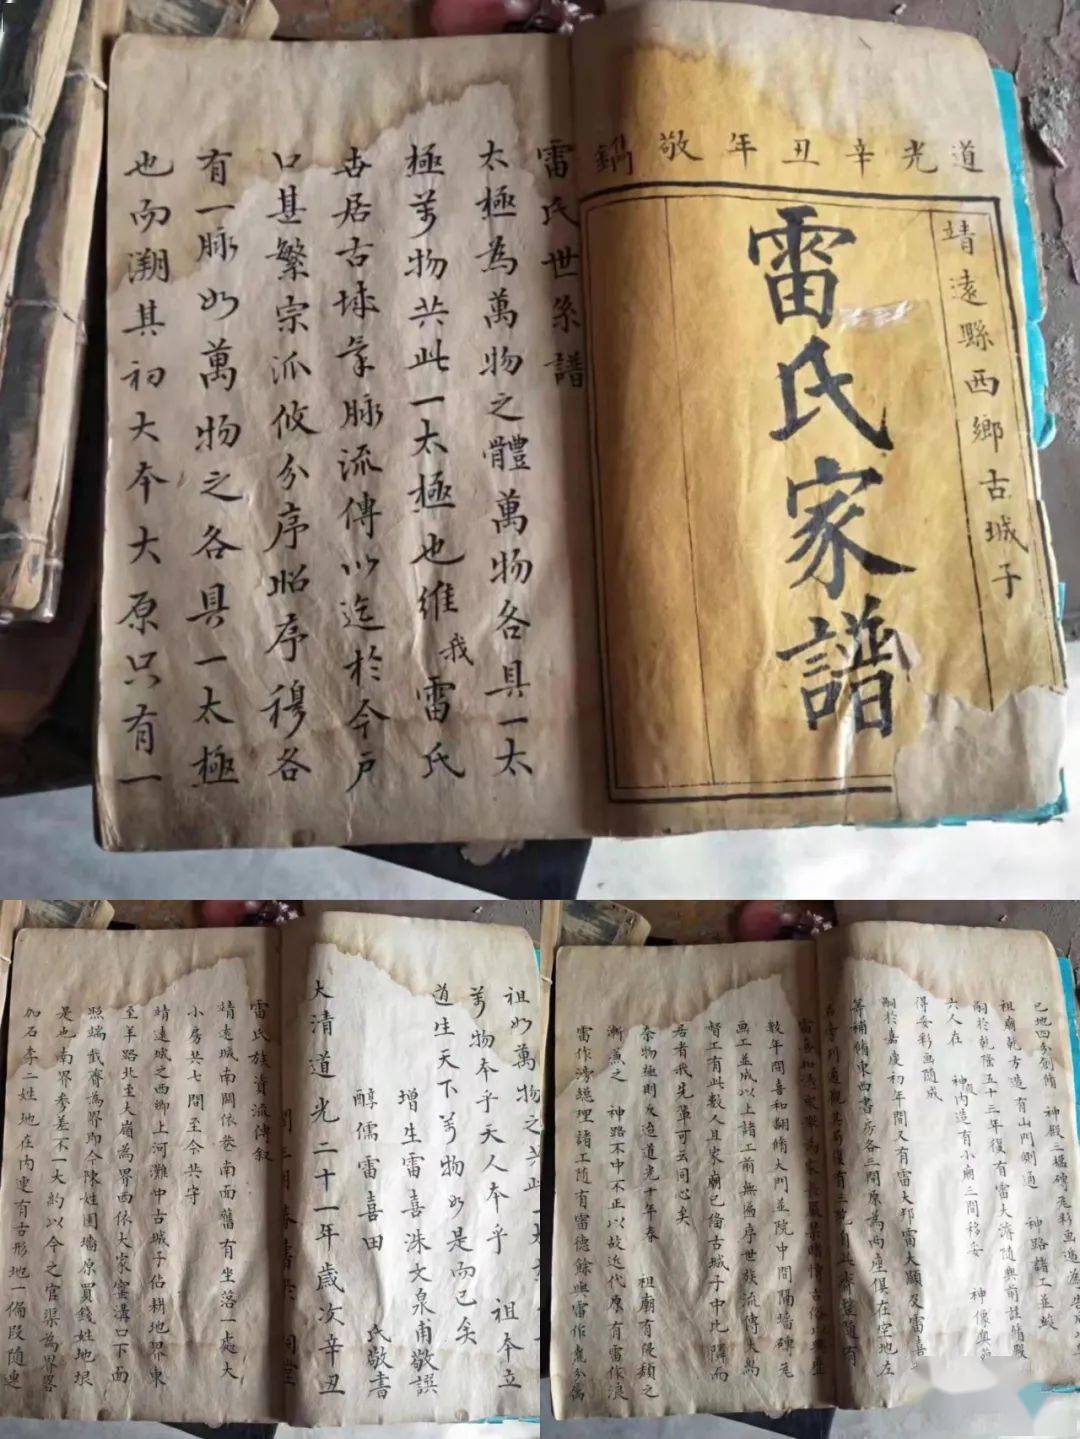 道光辛丑年敬鐫
靖遠縣西鄉古城子
雷氏家譜
雷氏世系譜
太極為萬物之體萬物各具一太
極萬物共此一太極也維我雷氏
世居古城宗脉流傳以迄於今户
口甚繁宗派攸分序昭序穆各
有一脉如萬物之各具一太極
也而溯其初大本大原只有一
祖如萬物之共此一太
萬物本乎天人本乎 祖今立
道生天下萬物如是而已矣
增生雷喜洙文泉甫敬譔
醇儒雷喜田 氏敬書
大清道光二十一年歲次辛丑
雷氏族資流傳叙
靖遠城南關依巷南面舊有坐落一處大
小房共七間至今共守
靖遠城之西鄉上河灘中古城子佔耕地界東
至羊路北至大崩為界西依大家窑溝口下面
照端截齊為界即今陳姓圍墻原買錢姓地垠
是也南界參差不一大約以今之官渠為界畧
加石李二姓地在内更有古形地一俻段隨連
神殿三楹磚瓦彩畫
祖廟乾方造有山門側通 神路諸工並峻
嗣於乾隆五十三年復有雷大濟隨與前註脩殿
六人在 神内造有小廟三間移安 神像與苑
得妥彩畫隨成
嗣於嘉慶初年間又有雷大邦雷大顯及雷喜
等補脩東西書房各三間原為兩座俱在空地左
數年間喜和翻脩大門並院中間隔墻磚瓦
畫工並成以上諸工前無遍序世族流傳大為
督工有此數人且家廟已偹古城子中北隣而
居者我先軰可云同心矣
奈物極則反迨道光十年春 祖廟有侵頹之
漸兼之 神路不中不正以故迭代原有雷作浪
雷作滂總理諸工隨有雷德餘與雷作